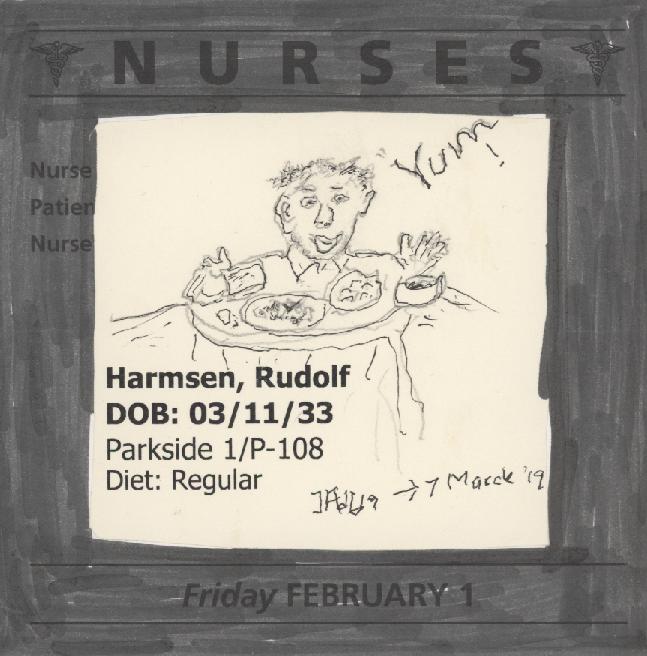 NURSES
Yum!
Nurse
Patien
Nurse
Harmsen, Rudolf
DOB: 03/11/33
Parkside 1/P-108
Diet: Regular
→ 7 March '19
Friday FEBRUARY 1